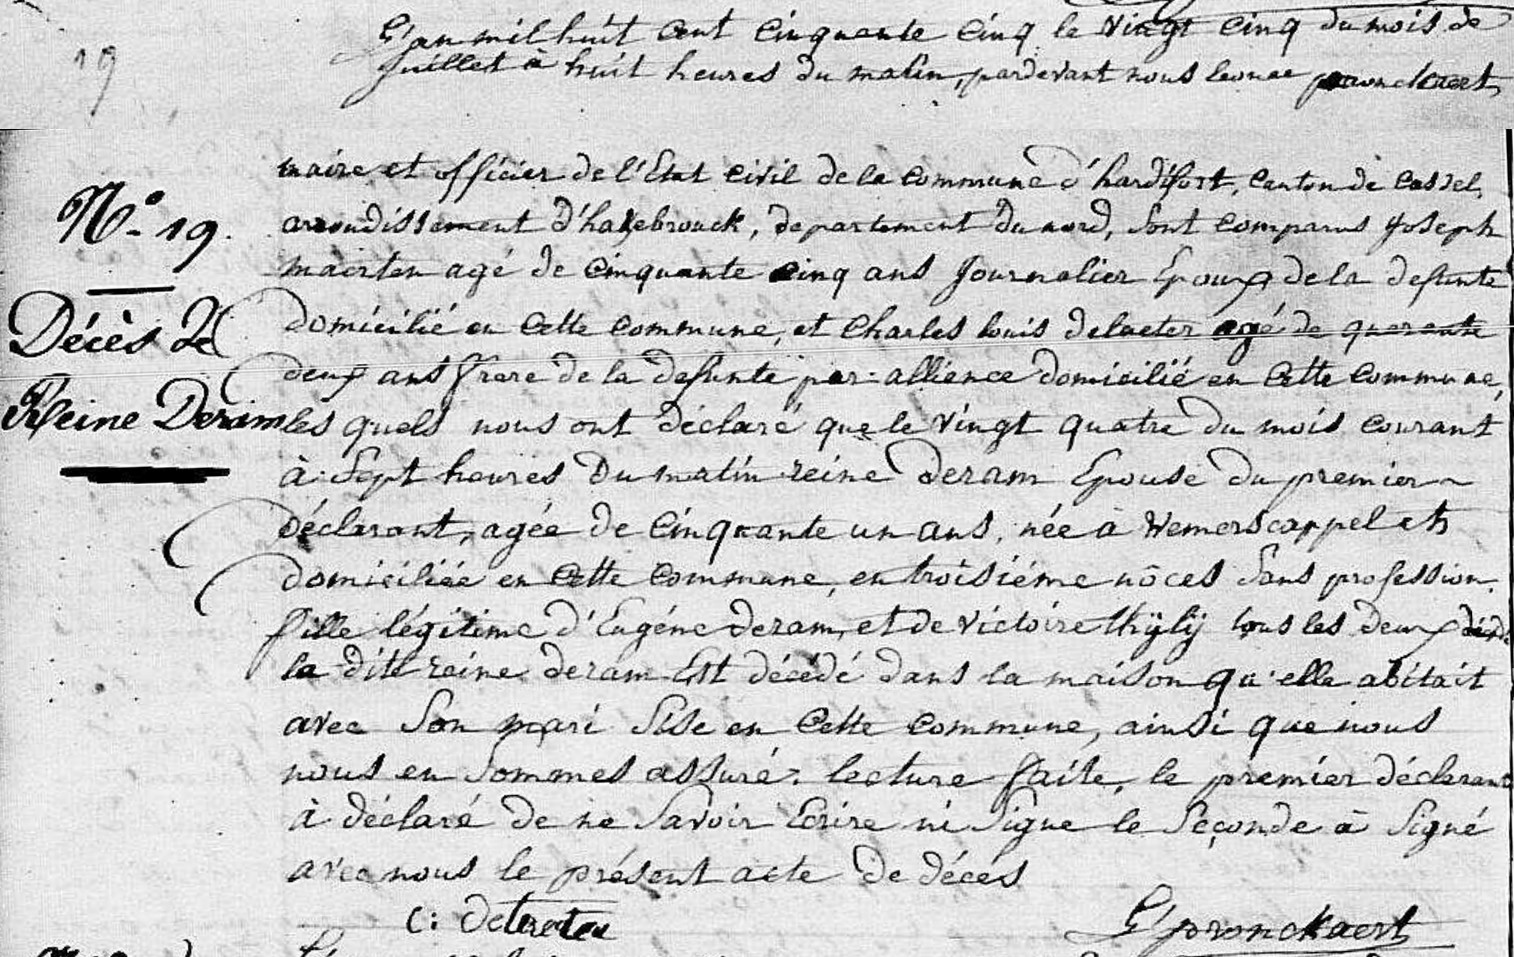 L'an mil huit cent cinquante cinq le vingt cinq du mois de
19
juillet à huit heures du matin, pardevant nous pronckaert
maire et officier de l'Etat civil de la commune d'hardifort, canton de cassel,
N.° 19.
arrondissement d'hazebrouck, departement du nord, sont comparus joseph
maerten agé de cinquante cinq ans journalier Epoux de la defunte
Décès de
domicilié en cette commune, et charles louis delaeter agé de quarante
deux ans frere de la defunte par allience domicilié en cette commune,
Reine Deram
les quels nous ont déclaré que le vingt quatre du mois courant
à sept heures du matin reine deram Epouse du premier
déclarant, agée de cinquante un ans, née à Wemerscappel et
domiciliée en cette commune, en troisiéme nôces sans profession
fille légitime d'Eugéne deram, et de victoire thÿlÿ tous les deux
la dite reine deram Est décédé dans la maison qu'elle abitait
avec son mari sise en cette commune, ainsi que nous
nous en sommes assuré. lecture faite, le premier déclarant
à déclaré de ne savoir Ecrire ni signe le seçonde à signé
avec nous le présent acte de décés
C: L pronckaert